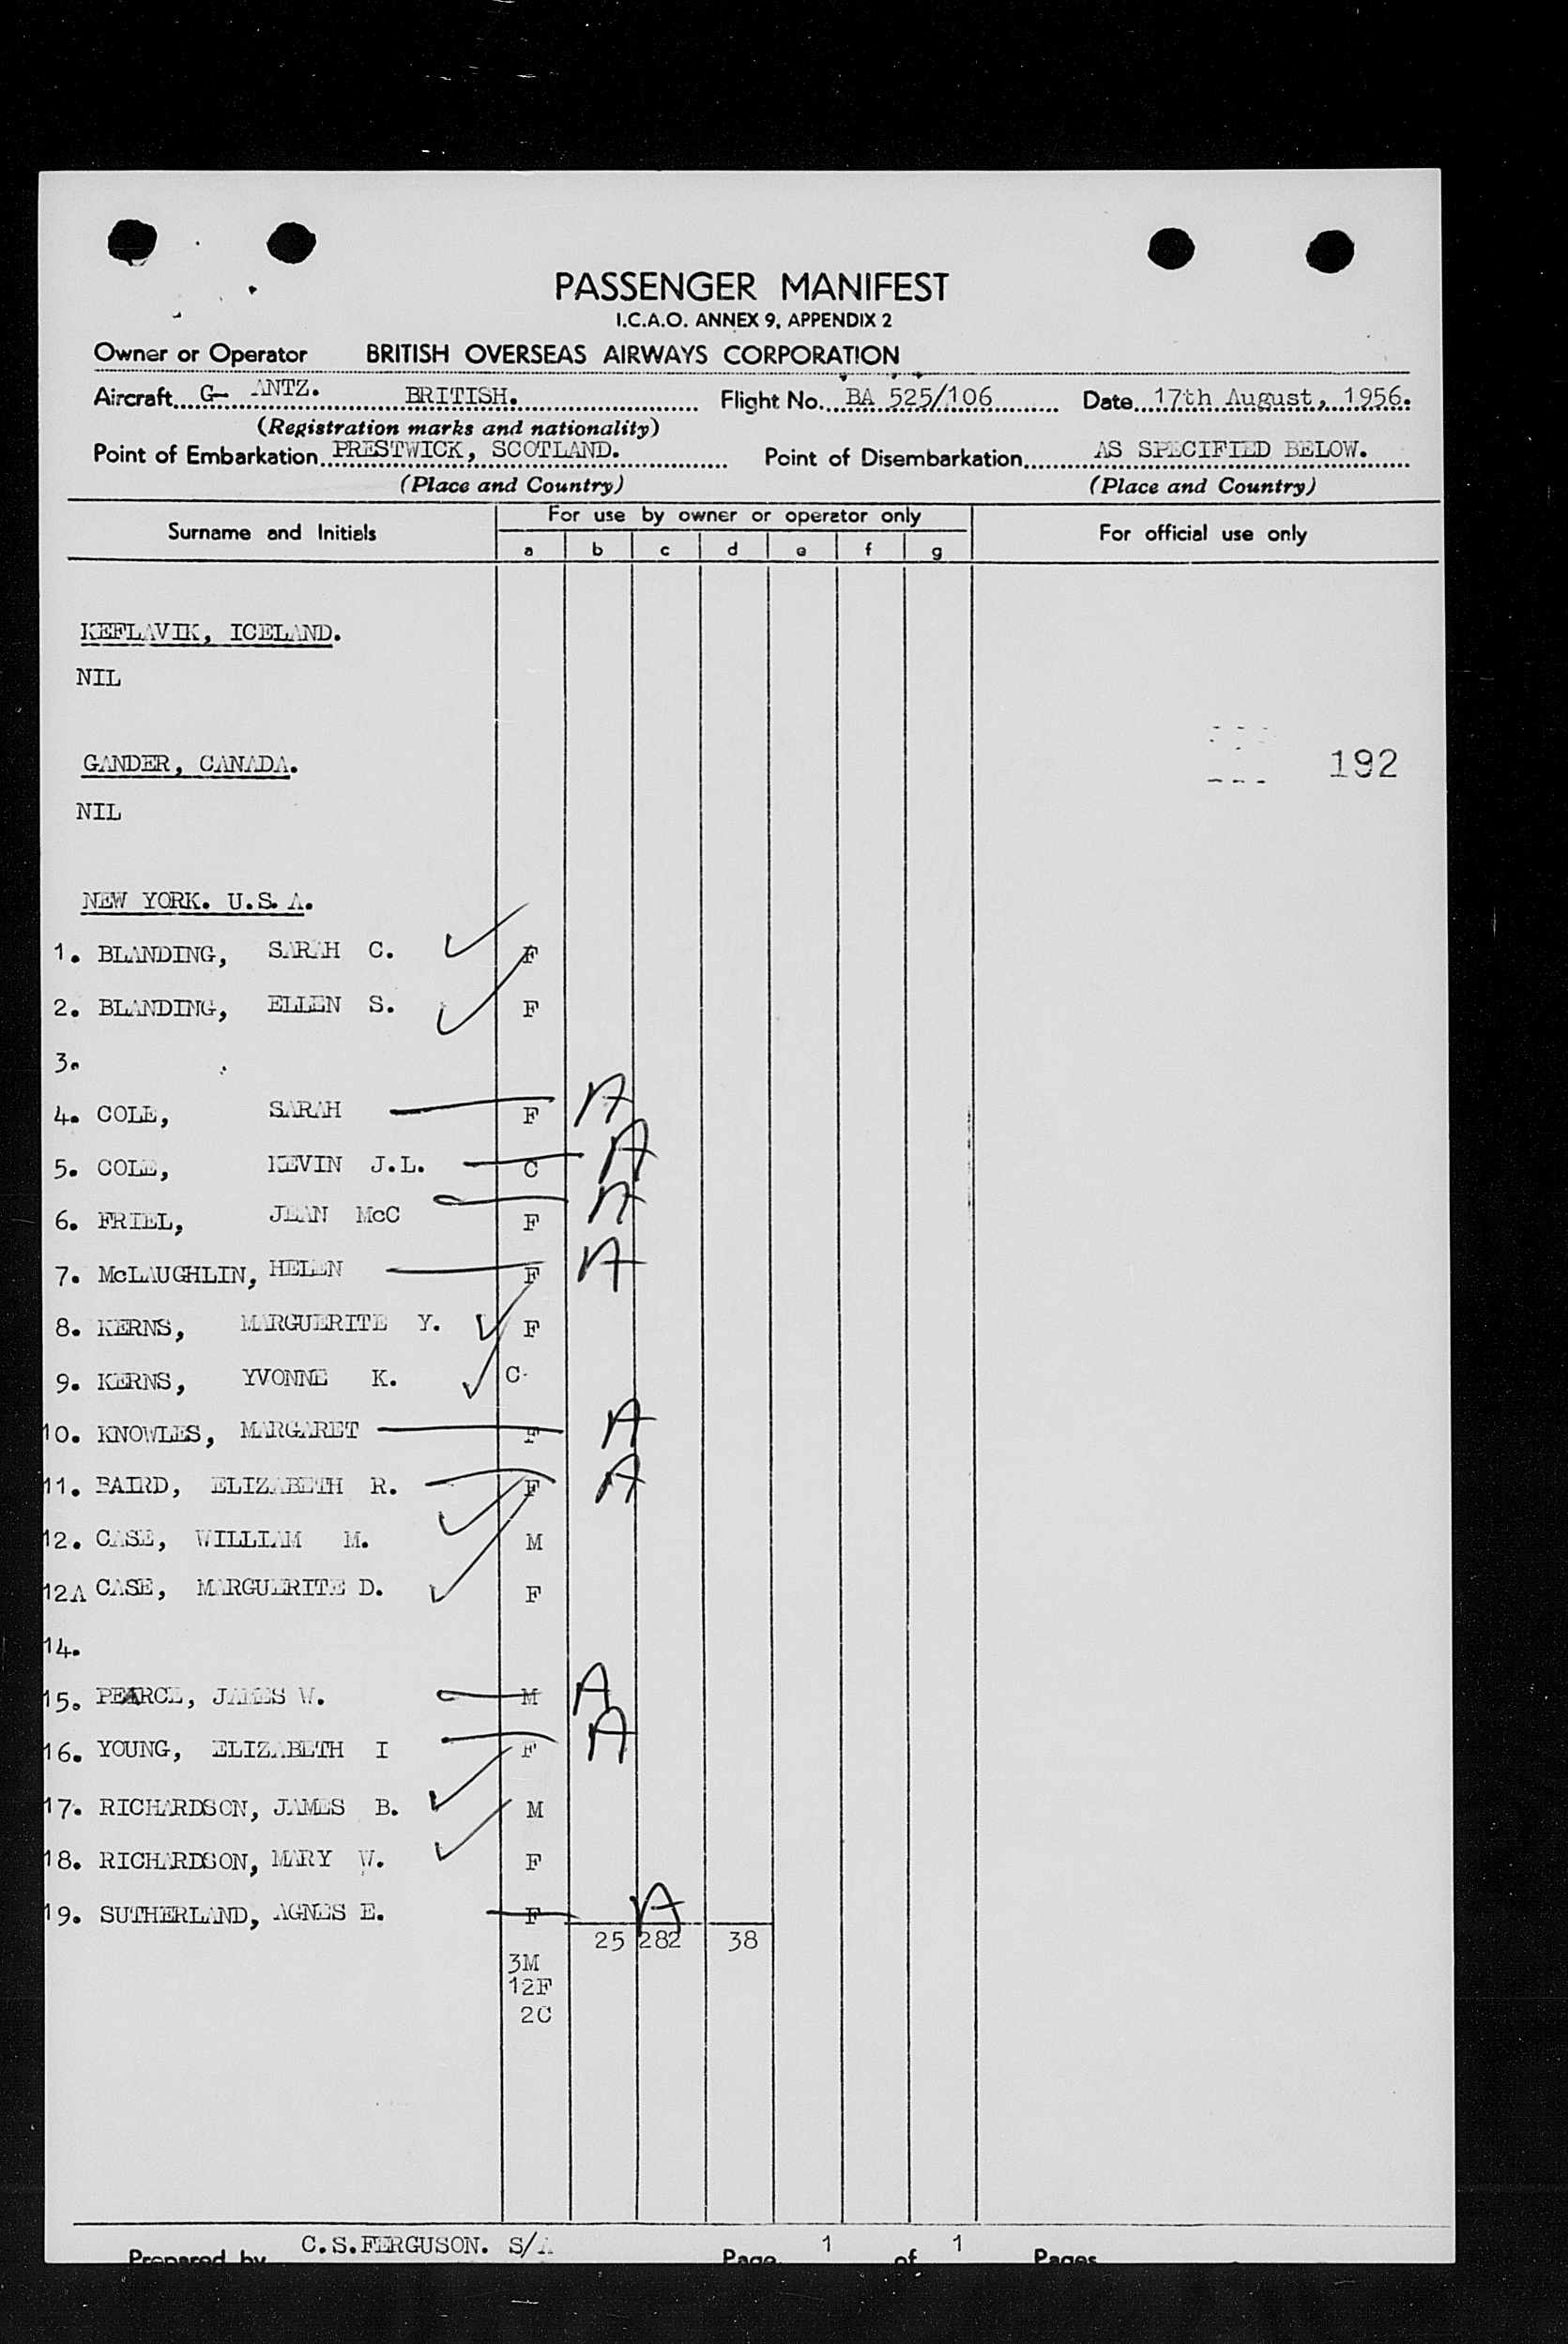 PASSENGER MANIFEST
I.C.A.O. ANNEX 9, APPENDIX 2
Owner or Operator BRITISH OVERSEAS AIRWAYS CORPORATION
Aircraft G- ANTZ. BRITISH. Flight No. BA 525/106 Date 17th August, 1956.
(Registration marks and nationality)
Point of Embarkation PRESTWICK, SCOTLAND. Point of Disembarkation AS SPECIFIED BELOW.
(Place and Country) (Place and Country)
Surname and Initials For use by owner or operator only For official use only
a b c d e f g
KEFLAVIK, ICELAND.
NIL
GANDER, CANADA. 192
NIL
NEW YORK. U.S.A.
1. BLANDING, SARAH C. F
2. BLANDING, ELLEN S. F
3.
4. COLE, SARAH F A
5. COLE, KEVIN J.L. C A
6. FRIEL, JEAN McC F A
7. McLAUGHLIN, HELEN F A
8. KERNS, MARGUERITE Y. F
9. KERNS, YVONNE K. C
10. KNOWLES, MARGARET F A
11. BAIRD, ELIZABETH R. F A
12. CASE, WILLIAM M. M
12A CASE, MARGUERITE D. F
14.
15. PEARCE, JAMES W. M A
16. YOUNG, ELIZABETH I F A
17. RICHARDSON, JAMES B. M
18. RICHARDSON, MARY W. F
19. SUTHERLAND, AGNES E. F A
25 282 38
3M
12F
2C
Prepared by C.S.FERGUSON. S/A Page 1 of 1 Pages